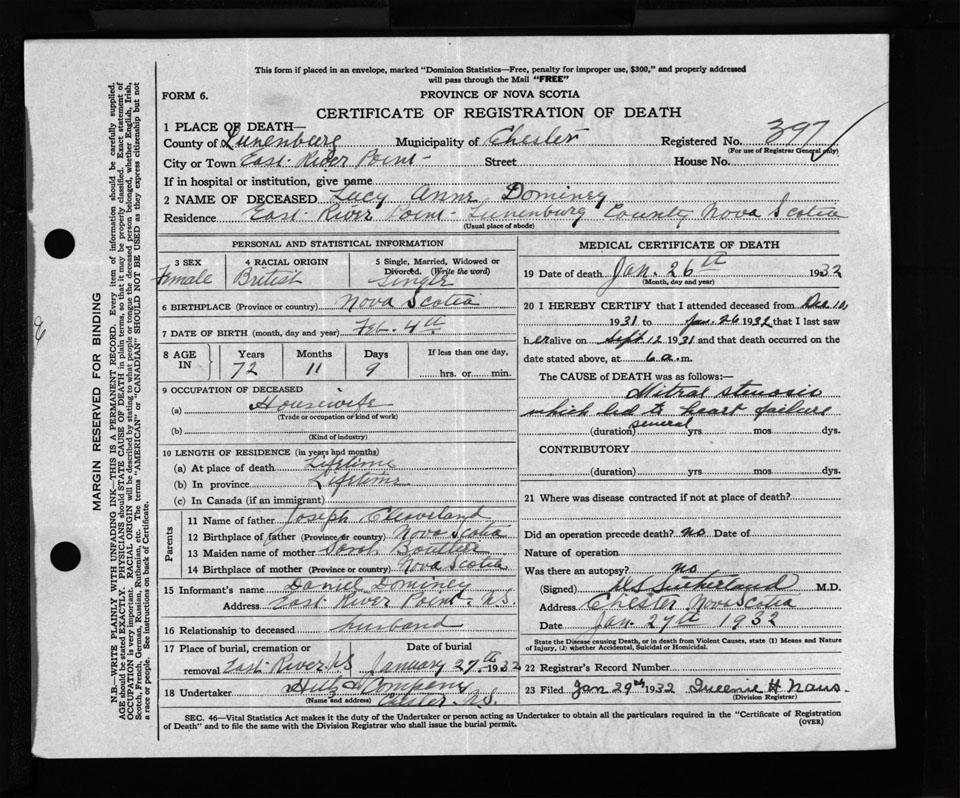 This form if placed in an envelope, marked "Dominion Statistics—Free, penalty for improper use, $300," and properly addressed
will pass through the Mail "FREE"
FORM 6.
PROVINCE OF NOVA SCOTIA
CERTIFICATE OF REGISTRATION OF DEATH
1 PLACE OF DEATH—
County of Lunenburg Municipality of Chester Registered No. 397
(For use of Registrar General only)
City or Town East River Point Street House No.
If in hospital or institution, give name
2 NAME OF DECEASED Lucy Anne Dominey
Residence East River Point - Lunenburg County Nova Scotia
(Usual place of abode)
PERSONAL AND STATISTICAL INFORMATION
3 SEX 4 RACIAL ORIGIN 5 Single, Married, Widowed or
Divorced. (Write the word)
Female British Single
6 BIRTHPLACE (Province or country) Nova Scotia
7 DATE OF BIRTH (month, day and year) Feb. 4th
8 AGE IN Years Months Days If less than one day,
72 11 9 hrs. or min.
9 OCCUPATION OF DECEASED
(a) Housewife
(Trade or occupation or kind of work)
(b)
(Kind of industry)
10 LENGTH OF RESIDENCE (in years and months)
(a) At place of death Lifetime
(b) In province Lifetime
(c) In Canada (if an immigrant)
Parents
11 Name of father Joseph Cleaveland
12 Birthplace of father (Province or country) Nova Scotia
13 Maiden name of mother Sarah Boutlier
14 Birthplace of mother (Province or country) Nova Scotia
15 Informant's name Daniel Dominey
Address East River Point. N.S.
16 Relationship to deceased husband
17 Place of burial, cremation or Date of burial
removal East River N.S January 27th 1932
18 Undertaker Hiltz & Company
(Name and address) Chester N.S.
MEDICAL CERTIFICATE OF DEATH
19 Date of death Jan. 26th 1932
(Month, day and year)
20 I HEREBY CERTIFY that I attended deceased from Dec. 10,
1931 to Jan. 26 1932 that I last saw
her alive on Sept 12 1931 and that death occurred on the
date stated above, at 6 a.m.
The CAUSE of DEATH was as follows:—
Mitral stenosis
which led to heart failure
(duration) several yrs mos dys.
CONTRIBUTORY
(duration) yrs mos dys.
21 Where was disease contracted if not at place of death?
Did an operation precede death? no Date of
Nature of operation
Was there an autopsy? no
(Signed) Sutherland M.D.
Address Chester Nova Scotia
Date Jan. 27th 1932
State the Disease causing Death, or in death from Violent Causes, state (1) Means and Nature
of Injury, (2) whether Accidental, Suicidal or Homicidal.
22 Registrar's Record Number
23 Filed Jan 29th 1932 Queenie H Naus.
(Division Registrar)
SEC. 46—Vital Statistics Act makes it the duty of the Undertaker or person acting as Undertaker to obtain all the particulars required in the "Certificate of Registration
of Death" and to file the same with the Division Registrar who shall issue the burial permit.
(OVER)
MARGIN RESERVED FOR BINDING
N.B.—WRITE PLAINLY WITH UNFADING INK—THIS IS A PERMANENT RECORD. Every item of information should be carefully supplied.
AGE should be stated EXACTLY. PHYSICIANS should STATE CAUSE OF DEATH in plain terms, so that it may be properly classified. Exact statement of
OCCUPATION is very important. RACIAL ORIGIN will be described by stating to what people or tongue the deceased person belonged, whether English, Irish,
Scotch, French, German, Russian, Ruthenian, etc. The terms "AMERICAN" or "CANADIAN" SHOULD NOT BE USED as they express citizenship but not
a race or people. See instructions on back of Certificate.